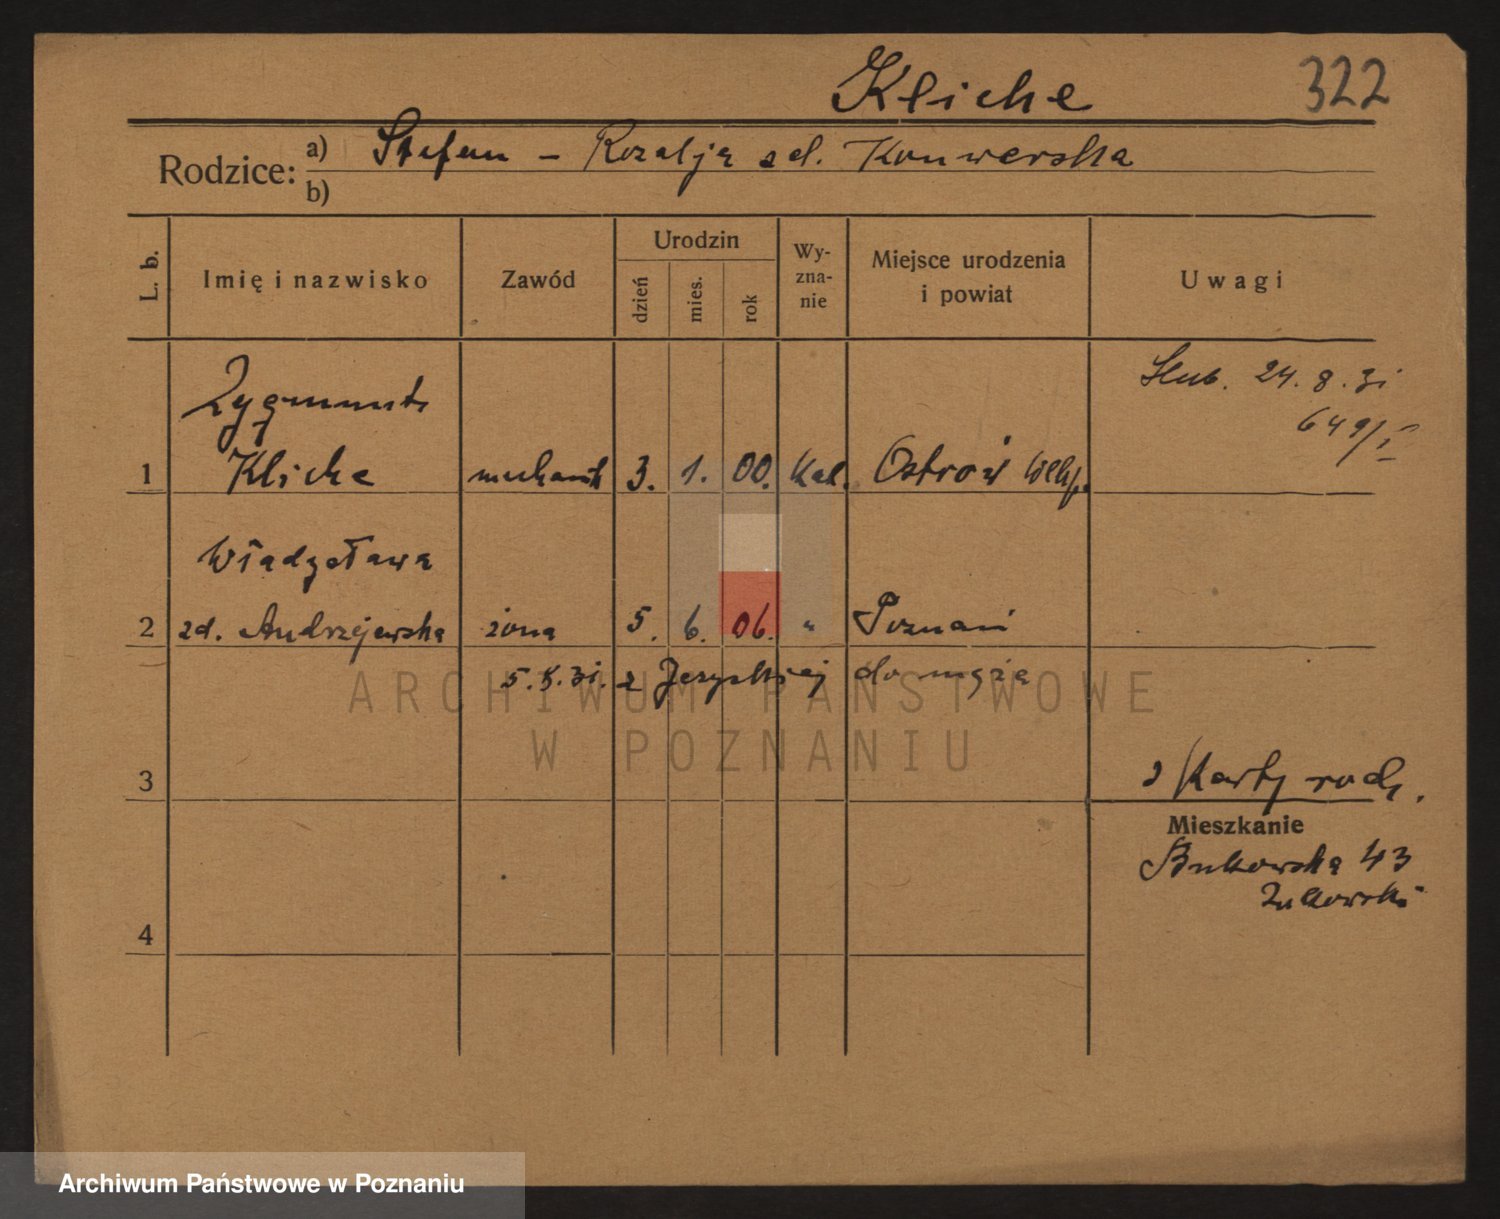 Kliche
322
Rodzice: a) Stefan – Rozalja zd. Konwerska
b)
L. b. Imię i nazwisko Zawód Urodzin dzień mies. rok Wy-zna-nie Miejsce urodzenia i powiat Uwagi
Ślub. 24. 8. 31
649/I
Zygmunt
1 Kliche mechanik 3. 1. 00. kat. Ostrów Wlkp.
Władysława
2 zd. Andrzejewska żona 5. 6. 06. " Poznań
5. X. 31. z Jeżyckiej do męża
ARCHIWUM PAŃSTWOWE
W POZNANIU
3
z karty rodz.
Mieszkanie
Bukowska 43
Żukowski
4
Archiwum Państwowe w Poznaniu